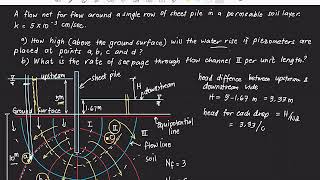 A flow net for flow around a single row of sheet pile in a permeable soil layer.
k = 5 x 10⁻³ cm/sec.
a) How high (above the ground surface) will the water rise if piezometers are
placed at points a, b, c and d?
b) What is the rate of seepage through flow channel II per unit length?
sheet pile
upstream
downstream
5m
1.67m
H
Ground surface
equipotential line
flow line
soil
10m
I
II
head difference between upstream &
downstream side
H = 5-1.67 m = 3.33 m
head for each drop = H/Nd
= 3.33/6
Nf = 3